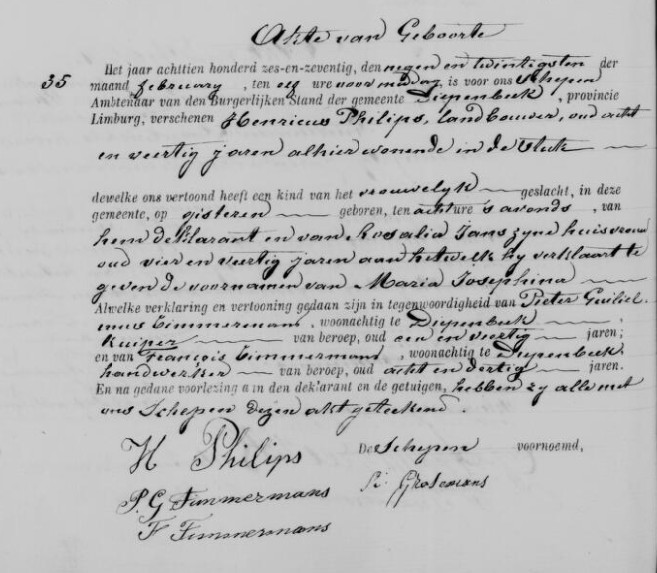 Akte van Geboorte
35
Het jaar achttien honderd zes-en-zeventig, den negen en twintigsten der
maand february, ten elf ure voormiddag, is voor ons Schepen
Ambtenaar van den Burgerlijken Stand der gemeente Diepenbeek, provincie
Limburg, verschenen Henricus Philips, landbouwer, oud acht
en veertig jaren alhier wonende in de
dewelke ons vertoond heeft een kind van het vrouwelyk geslacht, in deze
gemeente, op gisteren geboren, ten acht ure 's avonds, van
hem deklarant en van Rosalia Jans zyne huisvrouw
oud vier en veertig jaren aan hetwelk hy verklaart te
geven de voornamen van Maria Josephina
Alwelke verklaring en vertooning gedaan zijn in tegenwoordigheid van Pieter Guiliel
mus Timmermans, woonachtig te Diepenbeek,
Kuiper van beroep, oud een en veertig jaren;
en van François Timmermans, woonachtig te Diepenbeek,
handwerker van beroep, oud acht en dertig jaren.
En na gedane voorlezing aan den deklarant en de getuigen, hebben zy alle met
ons Schepen dezen akt geteekend.
H Philips
De Schepen voornoemd,
P. G Timmermans
F Timmermans